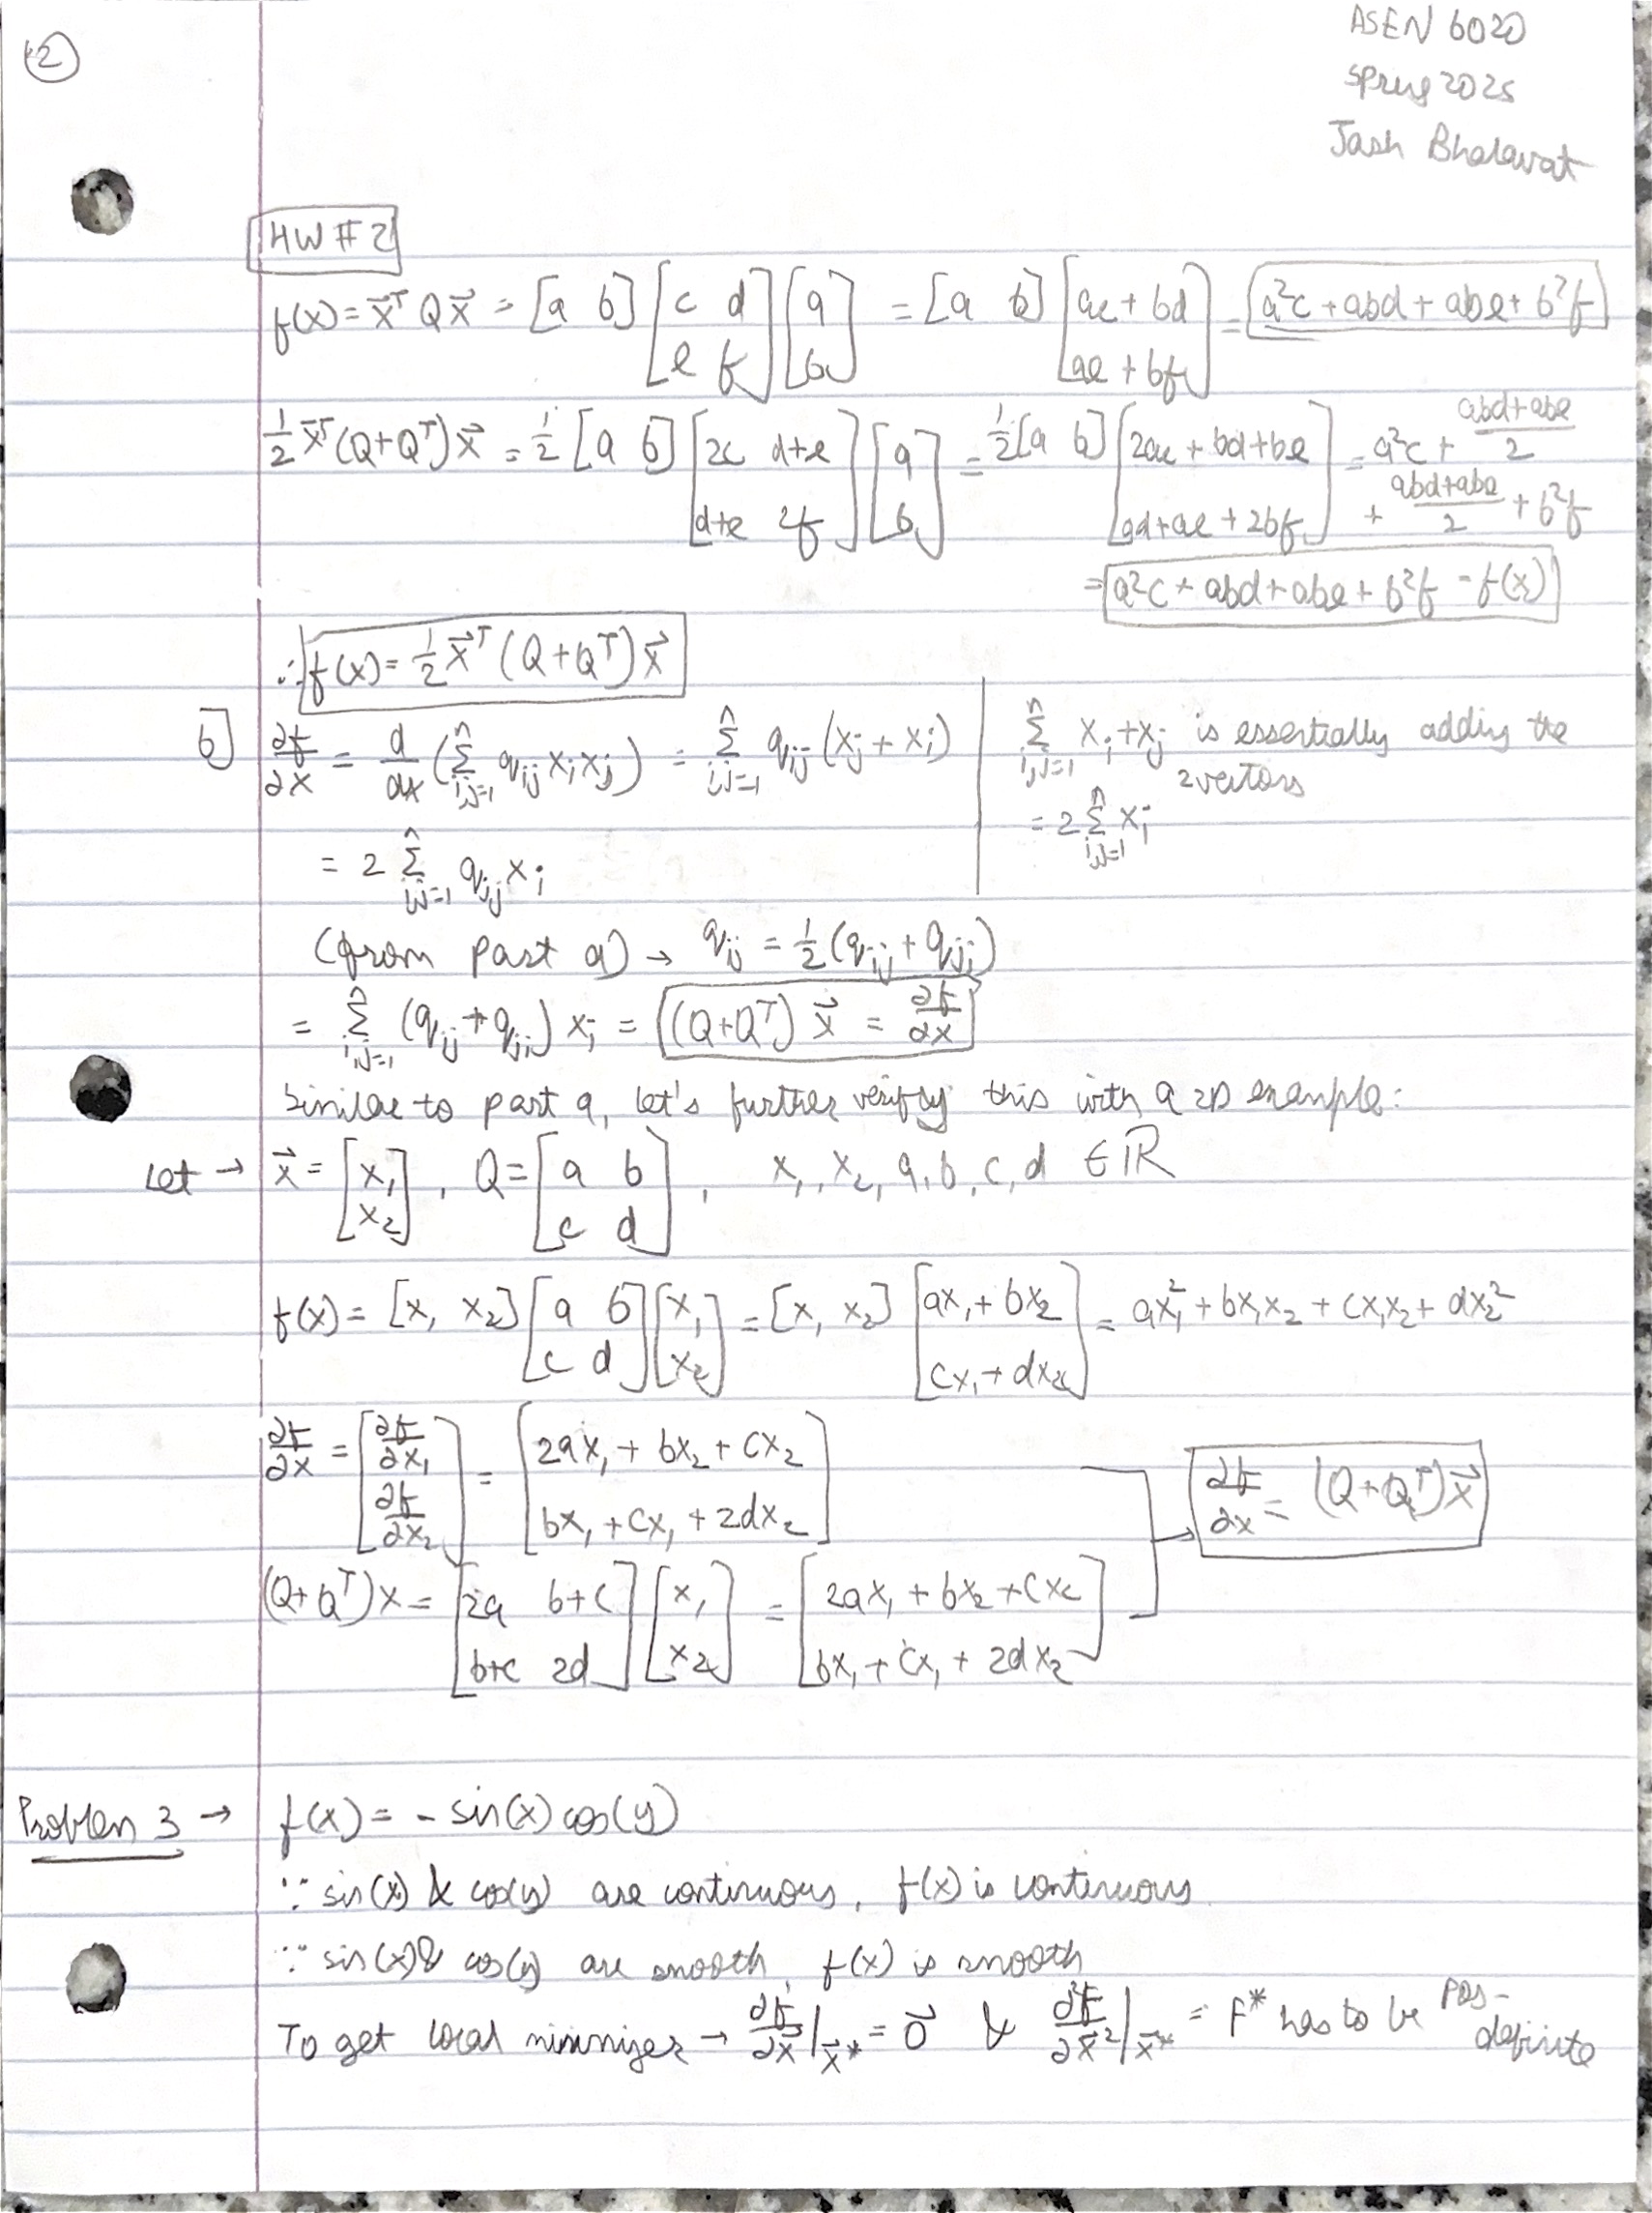 2
ASEN 6020
Spring 2025
Jash Bhalavat
HW # 2
f(x) = x⃗ᵀ Q x⃗ = [a b] [c d; e f] [a; b] = [a b] [ac + bd; ae + bf] = a²c + abd + abe + b²f
½ x⃗ᵀ (Q+Qᵀ) x⃗ = ½ [a b] [2c d+e; d+e 2f] [a; b] = ½ [a b] [2ac + bd + be; ad + ae + 2bf] = a²c + (abd+abe)/2 + (abd+abe)/2 + b²f
= a²c + abd + abe + b²f = f(x)
∴ f(x) = ½ x⃗ᵀ (Q+Qᵀ) x⃗
b] ∂f/∂x = d/dx (Σⁿ_{i,j=1} q_ij x_i x_j) = Σⁿ_{i,j=1} q_ij (x_j + x_i) | Σⁿ_{i,j=1} x_i + x_j is essentially adding the 2 vectors
= 2 Σⁿ_{i,j=1} x_i
= 2 Σⁿ_{i,j=1} q_ij x_i
(from part a) → q_ij = ½ (q_ij + q_ji)
= Σⁿ_{i,j=1} (q_ij + q_ji) x_i = (Q+Qᵀ) x⃗ = ∂f/∂x
Similar to part a, let's further verify this with a 2D example:
Let → x⃗ = [x₁; x₂], Q = [a b; c d], x₁, x₂, a, b, c, d ∈ ℝ
f(x) = [x₁ x₂] [a b; c d] [x₁; x₂] = [x₁ x₂] [ax₁ + bx₂; cx₁ + dx₂] = ax₁² + bx₁x₂ + cx₁x₂ + dx₂²
∂f/∂x = [∂f/∂x₁; ∂f/∂x₂] = [2ax₁ + bx₂ + cx₂; bx₁ + cx₁ + 2dx₂]
∂f/∂x = (Q+Qᵀ) x⃗
(Q+Qᵀ) x = [2a b+c; b+c 2d] [x₁; x₂] = [2ax₁ + bx₂ + cx₂; bx₁ + cx₁ + 2dx₂]
Problem 3 → f(x) = - sin(x) cos(y)
∵ sin(x) & cos(y) are continuous, f(x) is continuous
∵ sin(x) & cos(y) are smooth, f(x) is smooth
To get local minimizer → ∂f/∂x⃗ |_x⃗* = 0⃗ & ∂²f/∂x⃗² |_x⃗* = F* has to be pos-definite